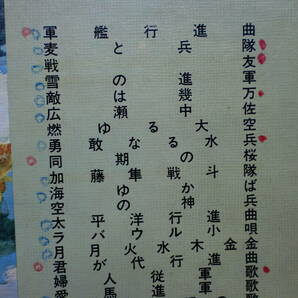 軍艦行進曲
麦と兵隊
戦友
雪の進軍
敵は幾万
広瀬中佐
燃ゆる大空
勇敢なる水兵
同期の桜
加藤隼戦斗隊
海ゆかば
空の神兵
太平洋行進曲
ラバウル小唄
月月火水木金金
君が代行進曲
婦人従軍歌
愛馬進軍歌